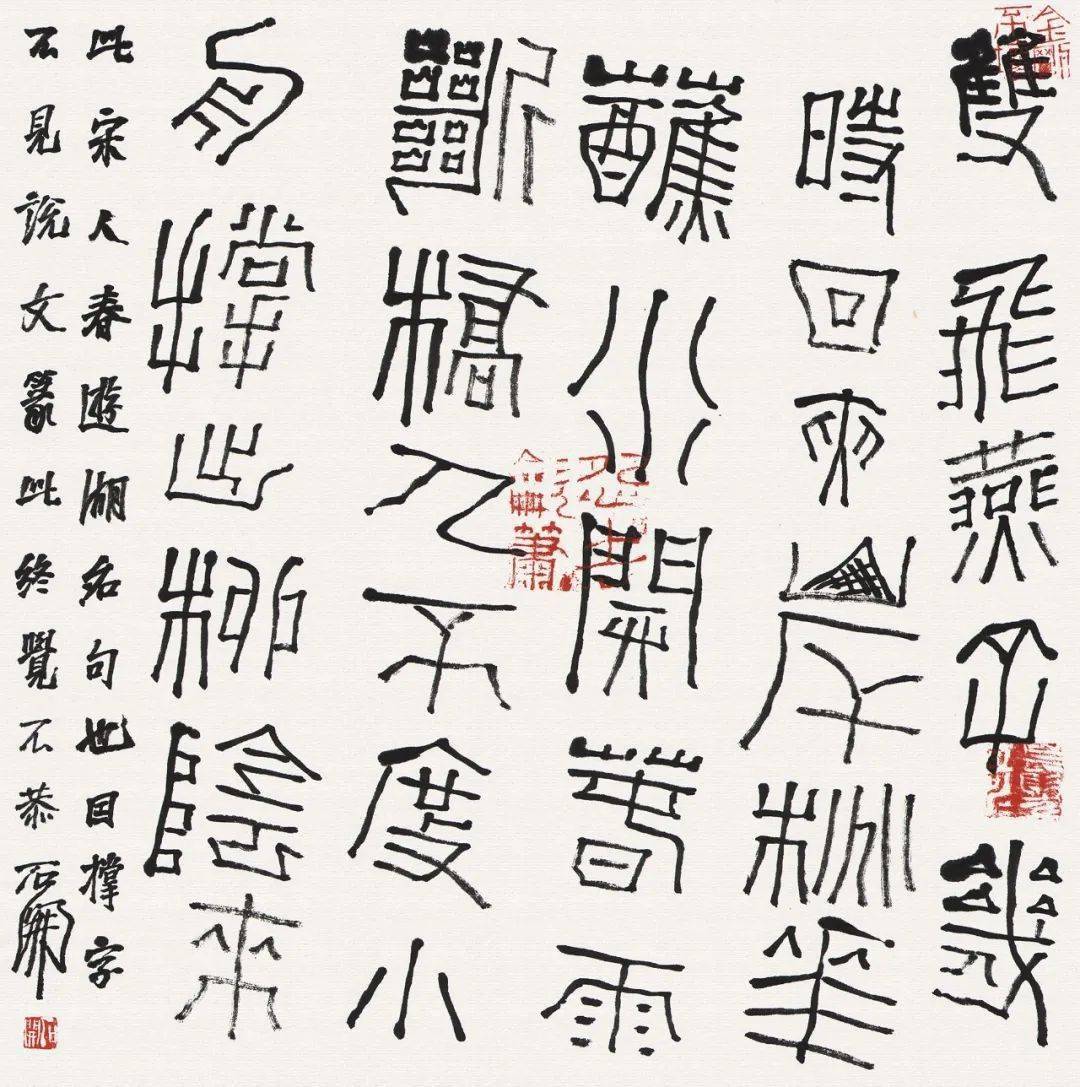 雙飛燕子幾
時回夾岸桃花
蘸水開春雨
斷橋人不度小
舟撐出柳陰來
此宋人春遊湖名句也因撐字
不見説文篆此終覺不恭石開